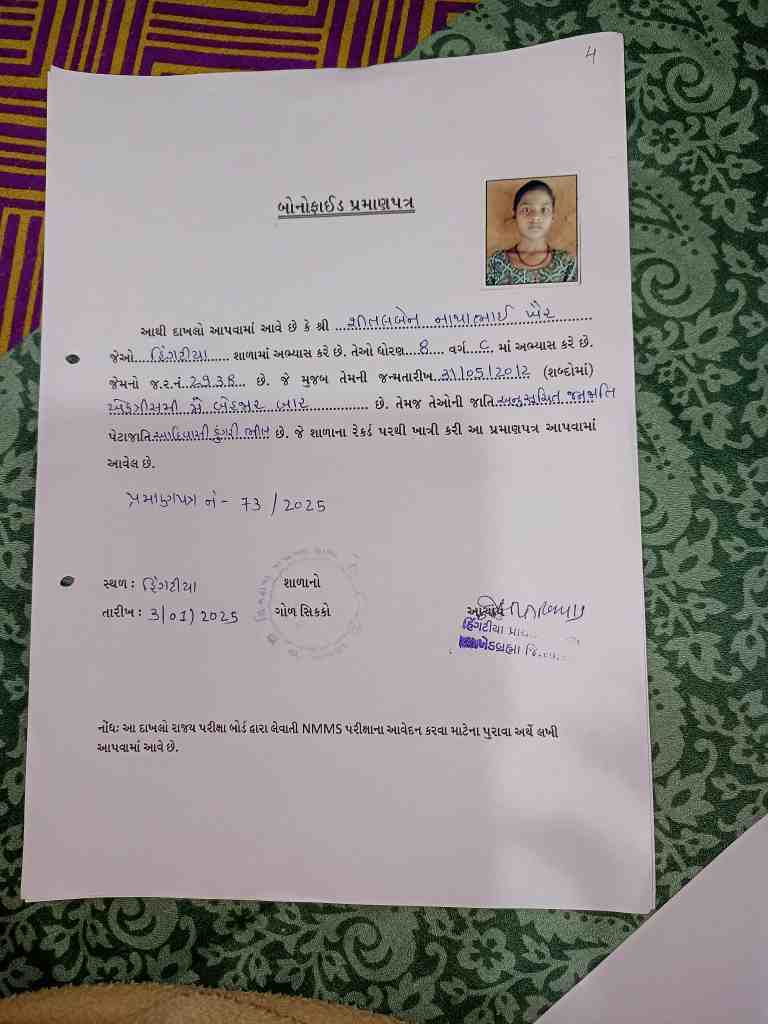 4
બોનોફાઈડ પ્રમાણપત્ર
આથી દાખલો આપવામાં આવે છે કે શ્રી ...શીતલબેન નાથાભાઈ ખૈર............
જેઓ....હિંગટીયા..... શાળામાં અભ્યાસ કરે છે. તેઓ ધોરણ....8.... વર્ગ...C.. માં અભ્યાસ કરે છે.
જેમનો જ.ર.નં.2938... છે. જે મુજબ તેમની જન્મતારીખ.31/05/2012 (શબ્દોમાં)
એકત્રીસમી મે બેહજાર બાર............... છે. તેમજ તેઓની જાતિ.અનુસૂચિત જનજાતિ
પેટાજાતિ.આદિવાસી ડુંગરી ભીલ છે. જે શાળાના રેકર્ડ પરથી ખાત્રી કરી આ પ્રમાણપત્ર આપવામાં
આવેલ છે.
પ્રમાણપત્ર નં - 73 / 2025
સ્થળ : હિંગટીયા શાળાનો
તારીખ : 3/01/2025 ગોળ સિક્કો આચાર્ય
હિંગટીયા પ્રા
ખેડબ્રહ્મા જિ.
નોંધ: આ દાખલો રાજ્ય પરીક્ષા બોર્ડ દ્વારા લેવાતી NMMS પરીક્ષાના આવેદન કરવા માટેના પુરાવા અર્થે લખી
આપવામાં આવે છે.